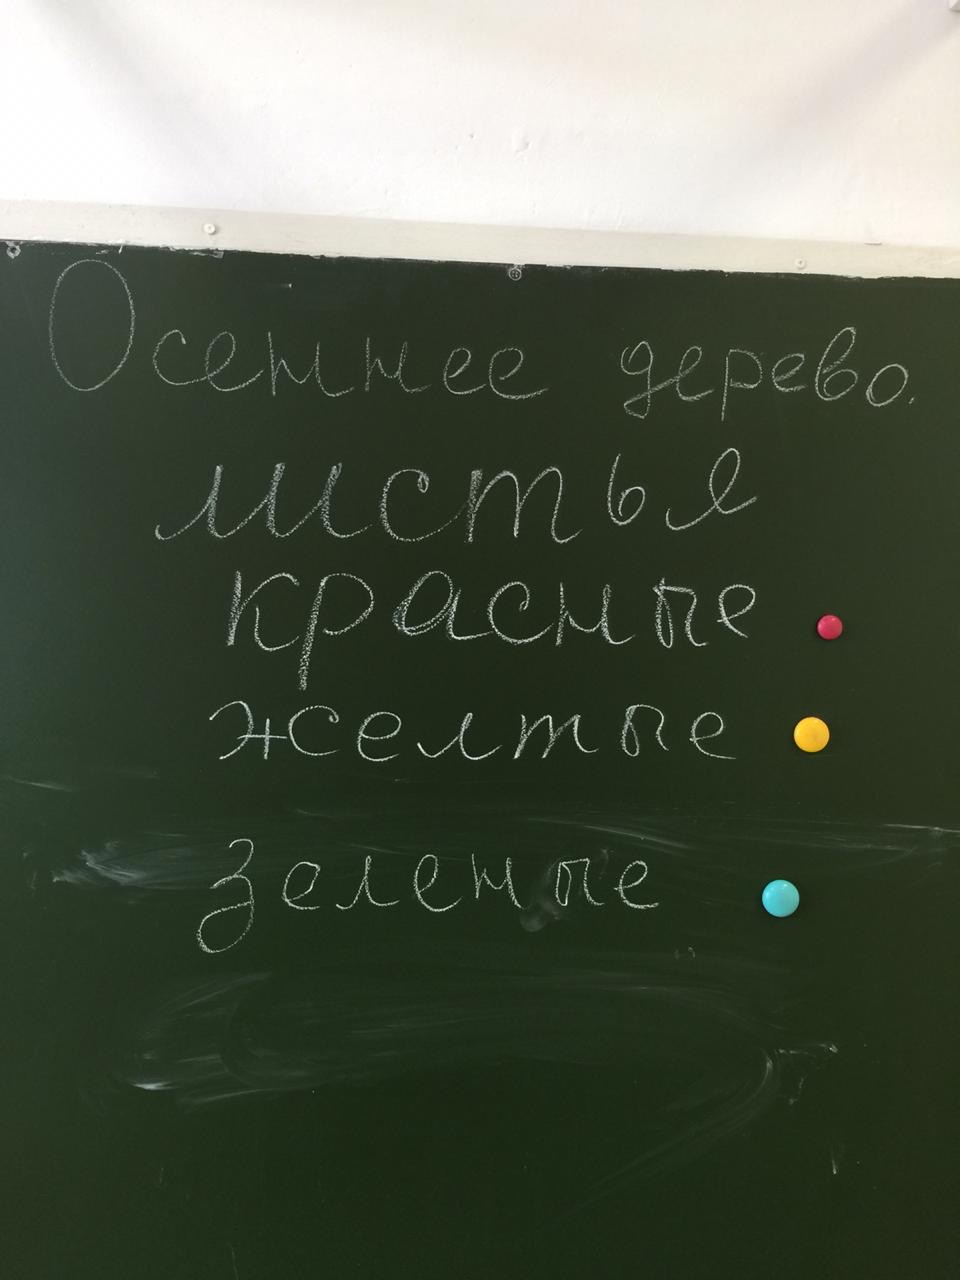 Осеннее дерево.
листья
красные
желтые
зеленые